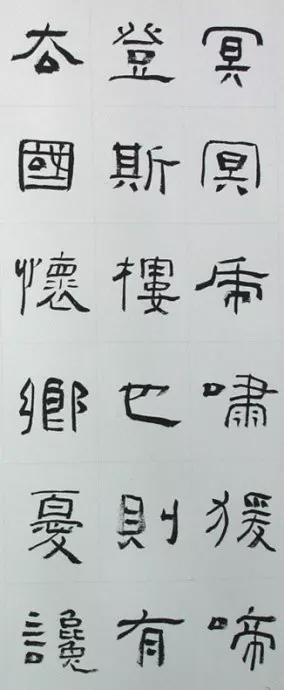 冥冥虎嘯猨啼
登斯樓也則有
去國懷鄉憂讒